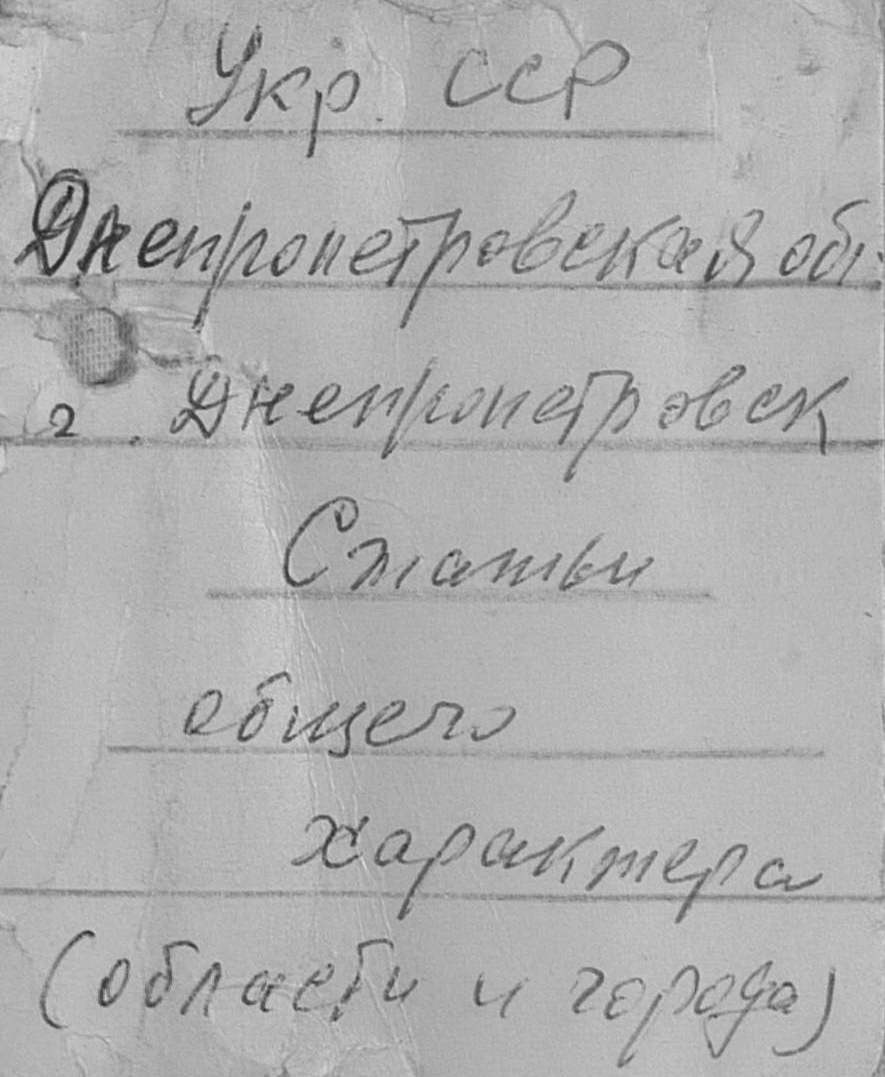 Укр. ССР
Днепропетровская обл.
г. Днепропетровск
Статьи
общего
характера
(области и города)